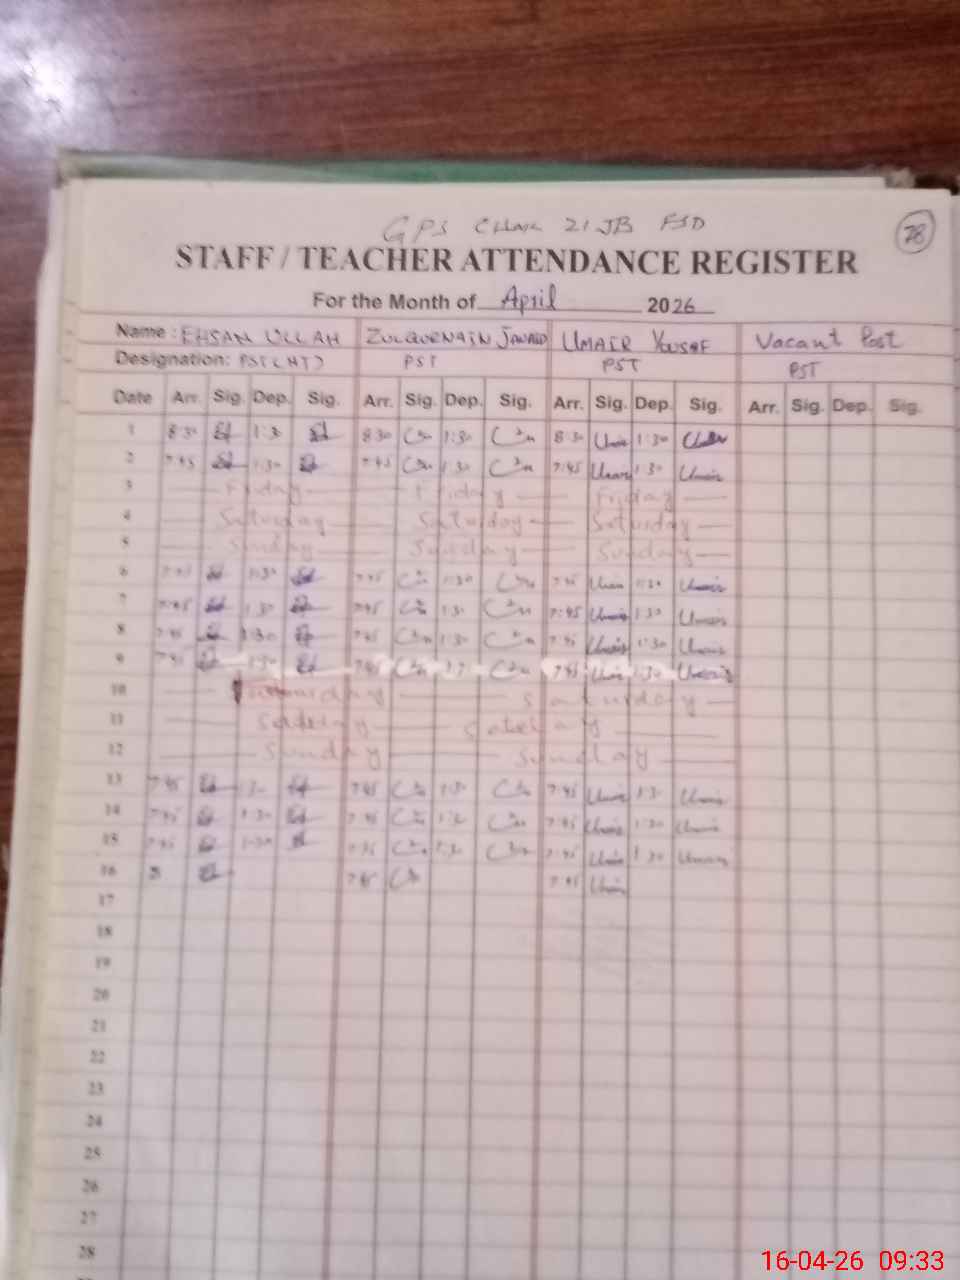 GPS CHAK 21 JB FSD
28
STAFF / TEACHER ATTENDANCE REGISTER
For the Month of April 2026
Name : EHSAN ULLAH ZULQURNAIN JAVAID UMAIR YOUSAF Vacant Post
Designation: PST(HT) PST PST PST
Date Arr. Sig. Dep. Sig. Arr. Sig. Dep. Sig. Arr. Sig. Dep. Sig. Arr. Sig. Dep. Sig.
1 8:30 1:30 8:30 1:30 8:30 Umair 1:30
2 7:45 1:30 7:45 1:30 7:45 Umair 1:30 Umair
3 Friday Friday Friday
4 Saturday Saturday Saturday
5 Sunday Sunday Sunday
6 7:45 1:30 7:45 1:30 7:45 Umair 1:30 Umair
7 7:45 1:30 7:45 1:30 7:45 Umair 1:30 Umair
8 7:45 1:30 7:45 1:30 7:45 Umair 1:30 Umair
9 7:45 1:30 7:45 7:45 Umair 1:30 Umair
10 Saturday
11
12 Sunday Sunday
13 7:45 7:45 1:30 7:45 Umair 1:30 Umair
14 7:45 1:30 7:45 7:45 Umair 1:30 Umair
15 7:45 1:30 7:45 1:30 7:45 Umair 1:30 Umair
16 7:45 7:45 Umair
17
18
19
20
21
22
23
24
25
26
27
28
16-04-26 09:33